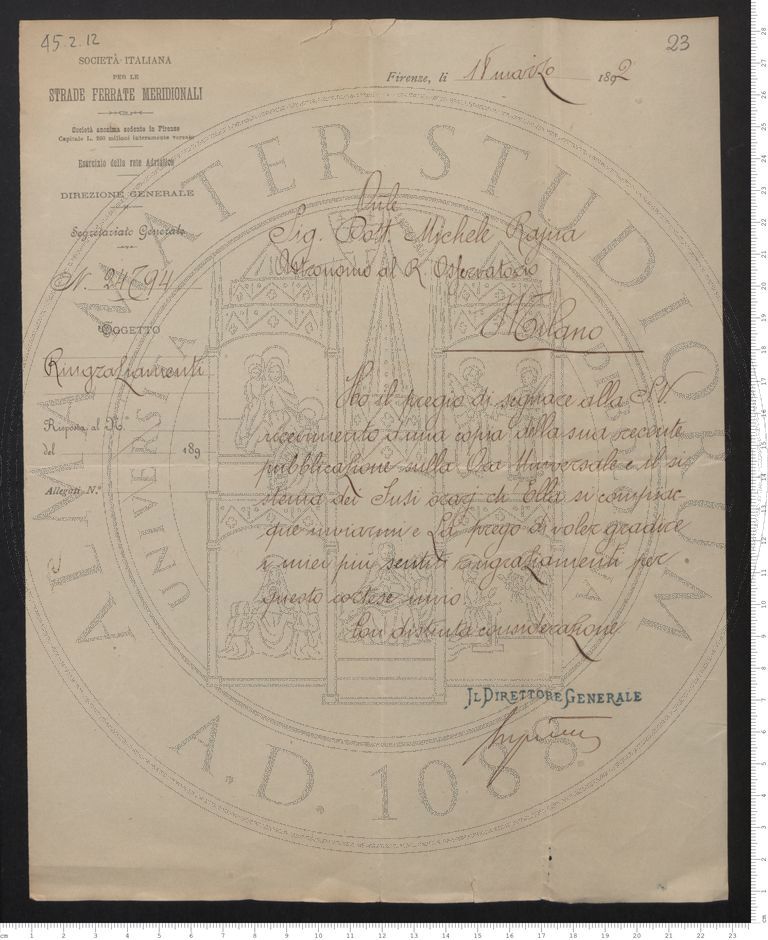 45.2.12
23
SOCIETÀ ITALIANA
PER LE
STRADE FERRATE MERIDIONALI
Società anonima sedente in Firenze
Capitale L. 260 milioni interamente versato
Esercizio della rete Adriatica
DIREZIONE GENERALE
Segretariato Generale
N.
OGGETTO
Ringraziamenti
Risposta al N.°
del 189
Allegati N.°
Firenze, li 18 marzo 1892
Sig. Dott. Michele Rajna
Astronomo al R. Osservatorio
Milano
Ho il pregio di segnare alla S.V.
ricevimento d'una copia della sua recente
pubblicazione sulla Ora Universale e il si
stema dei fusi orarj ch'Ella si compiac
que inviarmi e La prego di voler gradire
i miei più sentiti ringraziamenti per
questo cortese invio
Con distinta considerazione
IL DIRETTORE GENERALE
ALMA MATER STUDIORUM
A.D. 1088